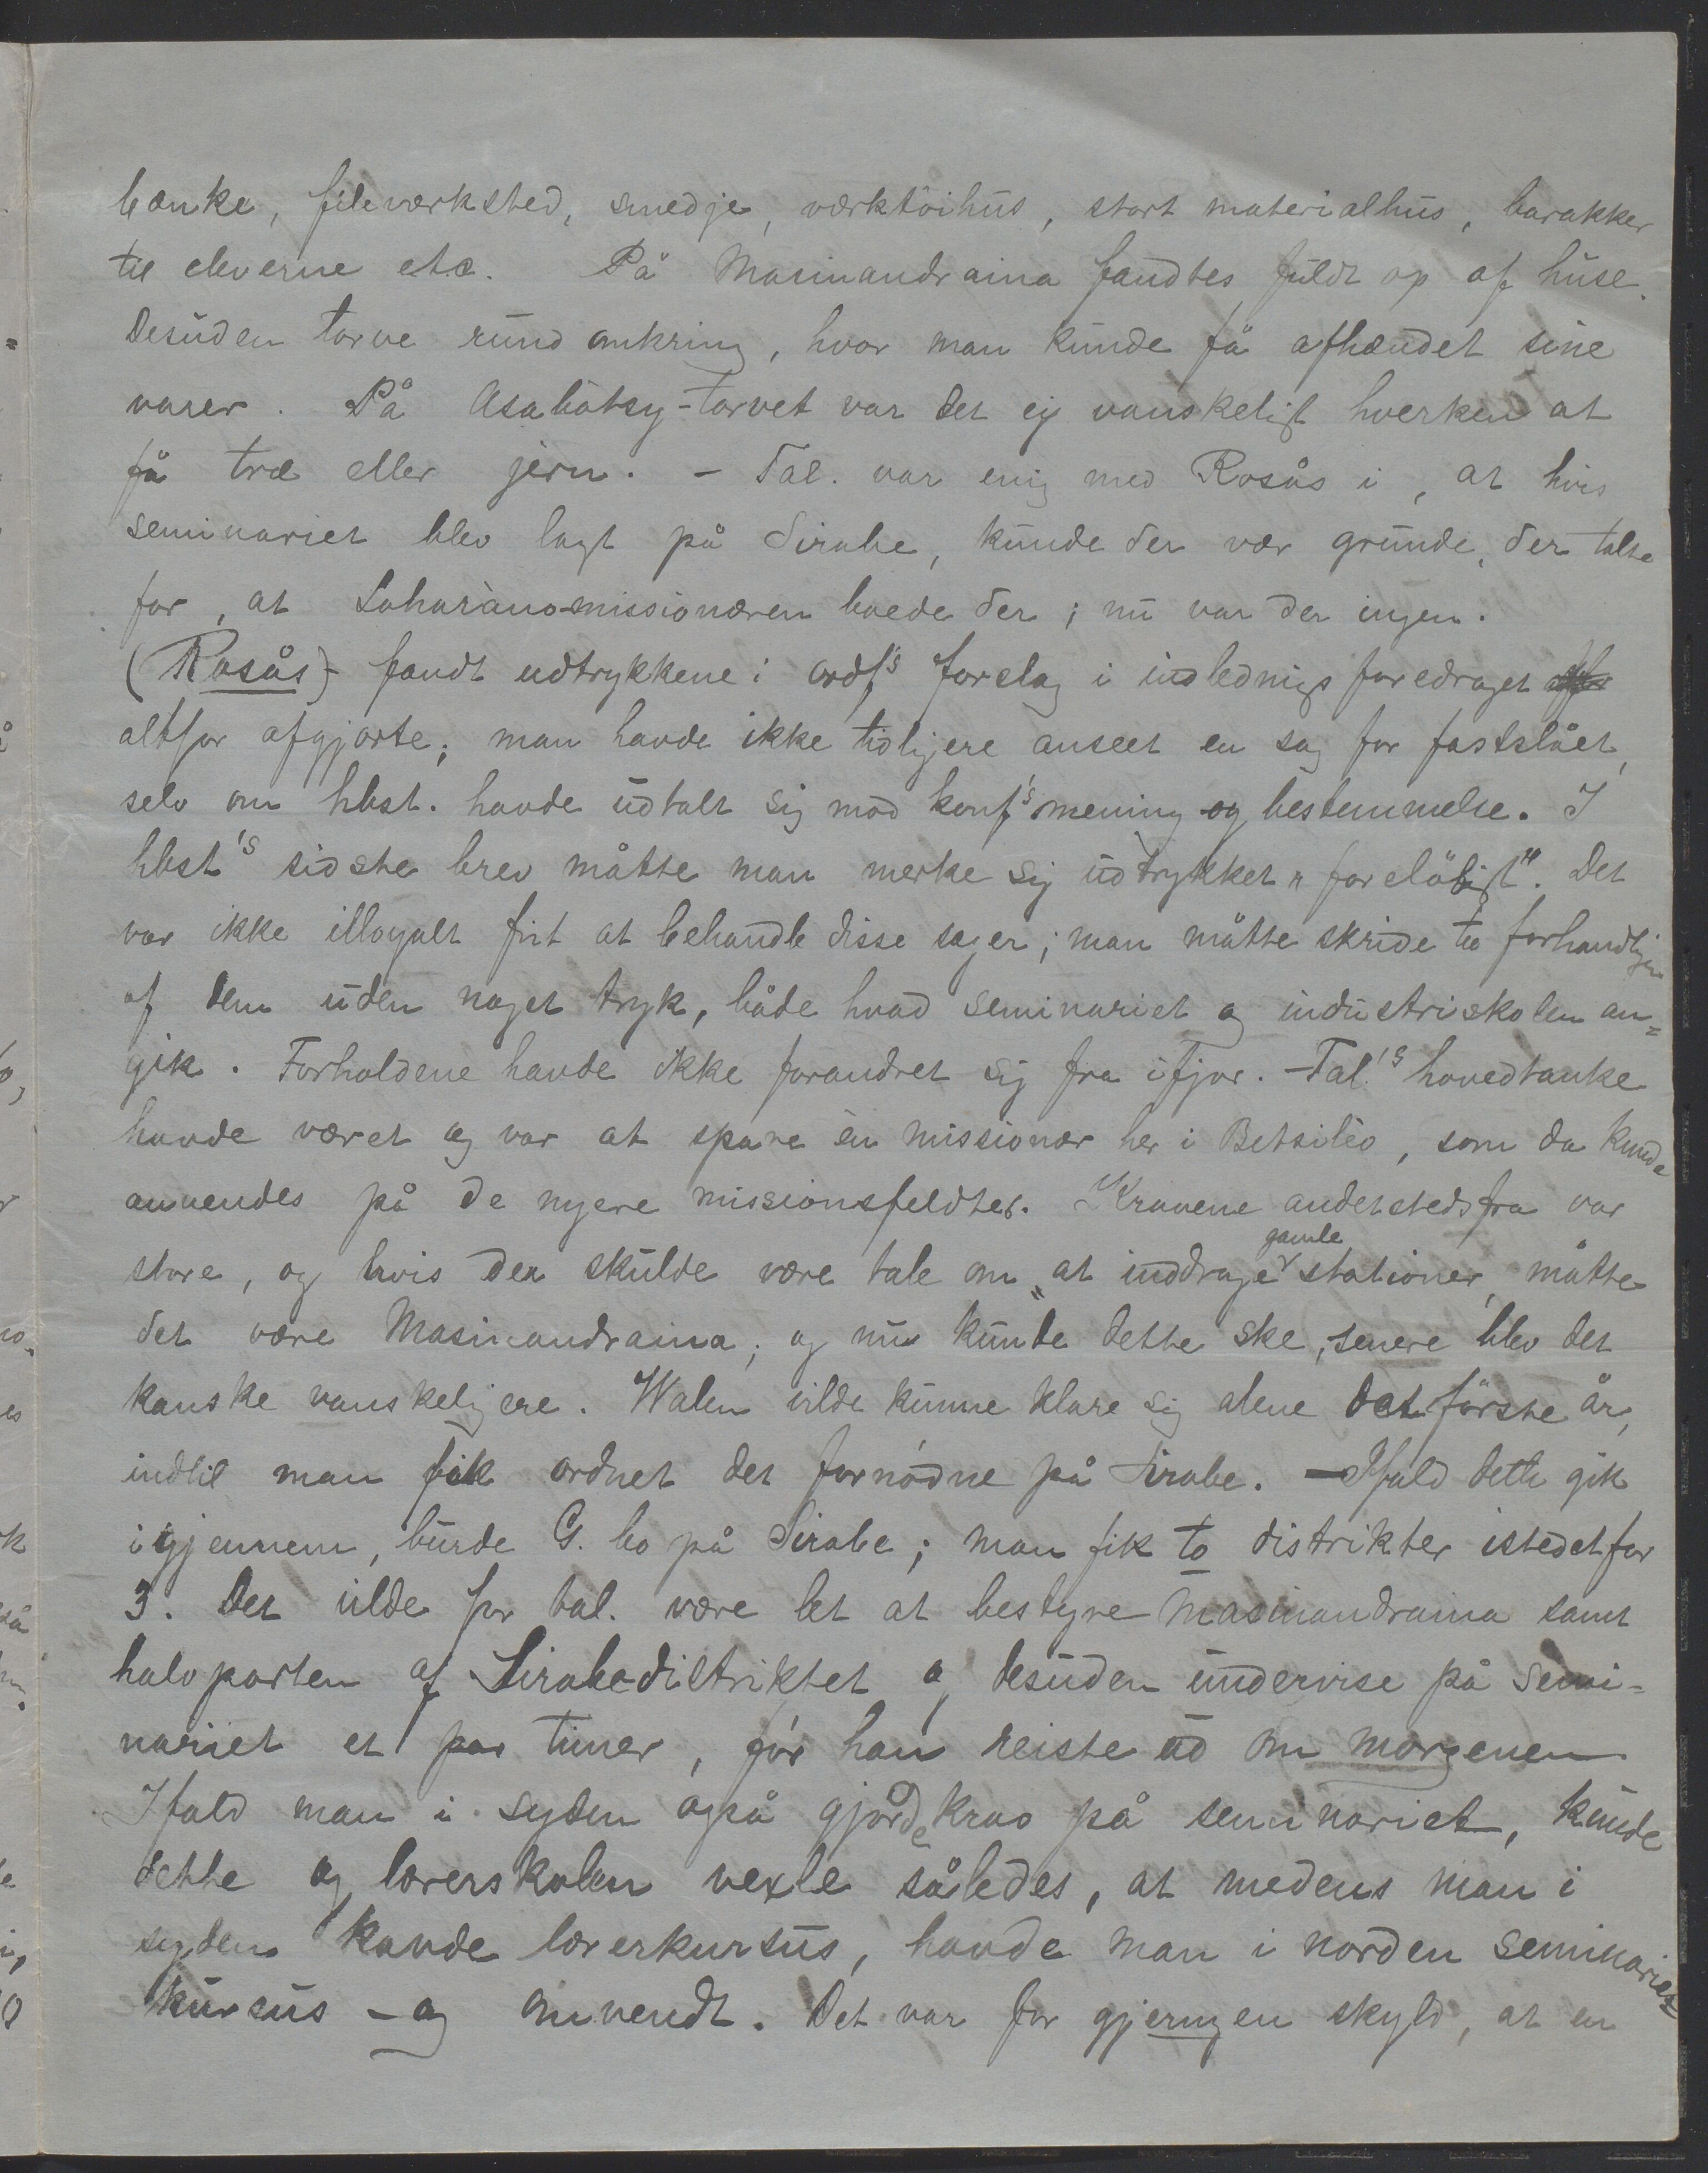 bænke, fileværksted, smedje, værktöihus, stort materialhus, barakker
til eleverne etc. På Masinandraina fandtes fuldt op af huse.
Desuden torve rund omkring, hvor man kunde få afhændet sine
varer. På Asabotsy-torvet var det ej vanskeligt hverken at
få træ eller jern. - Tal. var enig med Rosås i, at hvis
seminariet blev lagt på Sirabe, kunde der vær grunde, der talte
for, at Loharàno-missionæren boede der; nu var der ingen.
(Rosås) fandt udtrykkene i ordf's forslag i indlednigs foredraget
altfor afgjorte; man havde ikke tidligere anseet en sag for fastslået,
selv om hbst. havde udtalt sig mod konf's mening og bestemmelse. I
hbst's sidste brev måtte man merke sig udtrykket "foreløbigt". Det
var ikke illoyalt frit at behandle disse sager; man måtte skride til forhandligen
af dem uden noget tryk, både hvad seminariet og industriskolen an=
gik. Forholdene havde ikke forandret sig fra ifjor. - Tal.'s hovedtanke
havde været og var at spare èn missionær her i Betsilèo, som da kunde
anvendes på de nyere missionsfeldter. Kravene andetstedsfra var
store, og hvis der skulde være tale om "at inddrage gamle stationer, måtte
det være Masinandraina; og nu kunde dette ske, senere blev det
kanske vanskeligere. Walen vilde kunne klare sig alene det förste år,
indtil man fik ordnet det fornødne på Sirabe. - Ifald dette gik
igjennem, burde G. bo på Sirabe; man fik to distrikter istedetfor
3. Det vilde for tal. være let at bestyre Masinandraina samt
halvparten af Sirabedistriktet og desuden undervise på semi=
nariet et par timer, för han reiste ud om morgenen
Ifald man i syden også gjorde krav på seminariet, kunde
dette og lærerskolen vexle således, at medens man i
syden havde lærerkursus, havde man i norden seminariets
kursus - og omvendt. Det var for gjerningen skyld, at en